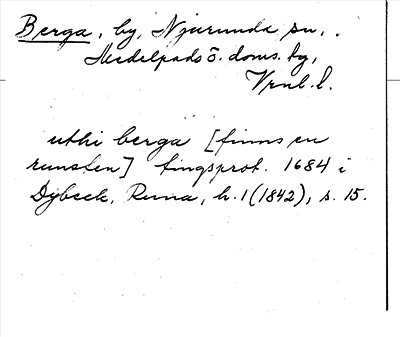 Berga, by, Njurunda sn,.
Medelpads ö. doms. hg,
Vrnl. l.
uthi berga [finns en
runsten] tingsprot. 1684 i
Dybeck, Runa, h. 1 (1842), s. 15.